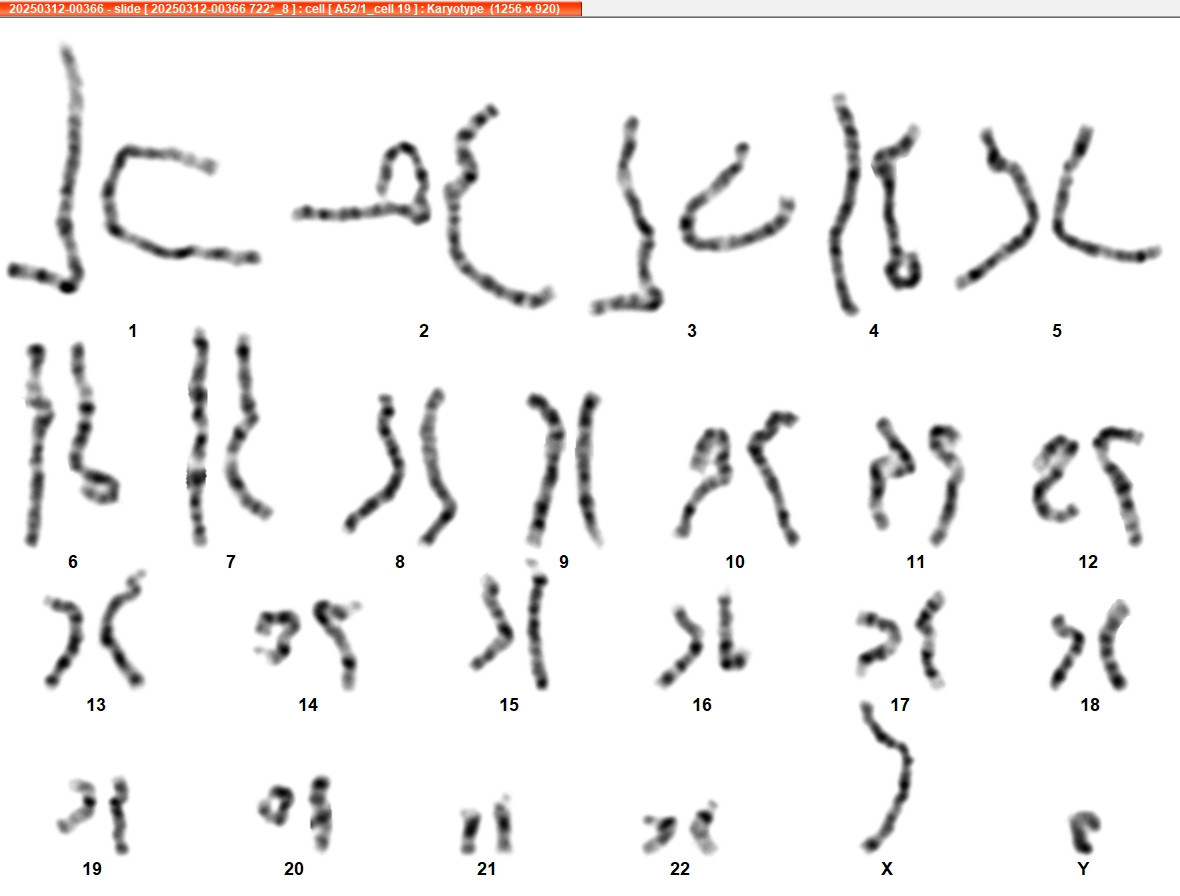 20250312-00366 - slide [ 20250312-00366 722*_8 ] : cell [ A52/1_cell 19 ] : Karyotype (1256 x 920)
1 2 3 4 5
6 7 8 9 10 11 12
13 14 15 16 17 18
19 20 21 22 X Y